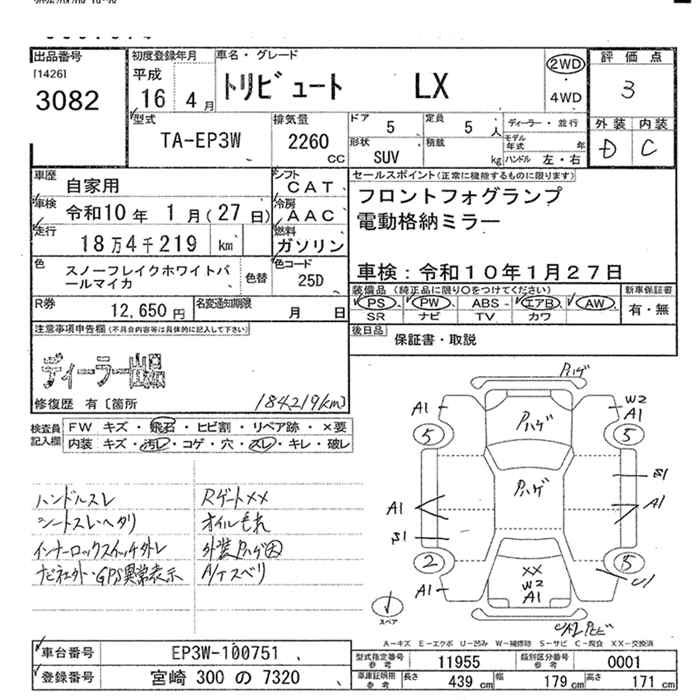 出品番号
[1426]
3082
初度登録年月
平成
16 4月
車名・グレード
トリビュート LX
2WD
・
4WD
評価点
3
外装 内装
D C
型式
TA-EP3W
排気量
2260
CC
ドア
5
定員
5 人
形状
SUV
積載
kg
ディーラー・並行
モデル年式 年
ハンドル 左・右
車歴
自家用
車検 令和10年 1月(27日)
走行
18万4千219 km
シフト
CAT
冷房
AAC
燃料
ガソリン
セールスポイント(正常に機能するものに限ります)
フロントフォグランプ
電動格納ミラー
車検:令和10年1月27日
色
スノーフレイクホワイトパールマイカ
色替
色コード
25D
R券
12,650円
名変通知期限
月 日
装備品(純正品に限り○をつけてください)
PS・PW・ABS・エアB・AW
SR ナビ TV カワ
新車保証書
有・無
後日品
保証書・取説
注意事項申告欄(不具合内容等は具体的に記入して下さい)
ディーラー
修復歴 有〔箇所
184,219km)
検査員記入欄
FW キズ・飛石・ヒビ割・リペア跡・×要
内装 キズ・汚レ・コゲ・穴・スレ・キレ・破レ
ハンドルスレ
シートスレ・ヘタリ
インナーロックスイッチ外レ
ナビ社外・GPS異常表示
RゲートXX
オイルモれ
外装Pハゲ
A/Tスベリ
Pハゲ
A1
W2
A1
5
5
Pハゲ
Pハゲ
S1
A1
A1
S1
2
5
XX
W2
A1
A1
U1
スペア
A−キズ E−エクボ U−凹み W−補修跡 S−サビ C−腐食 XX−交換済
車台番号
EP3W-100751
登録番号
宮崎 300 の 7320
型式指定番号
参考
11955
類別区分番号
参考
0001
車庫証明用
参考
長さ 439 cm
幅 179 cm
高さ 171 cm